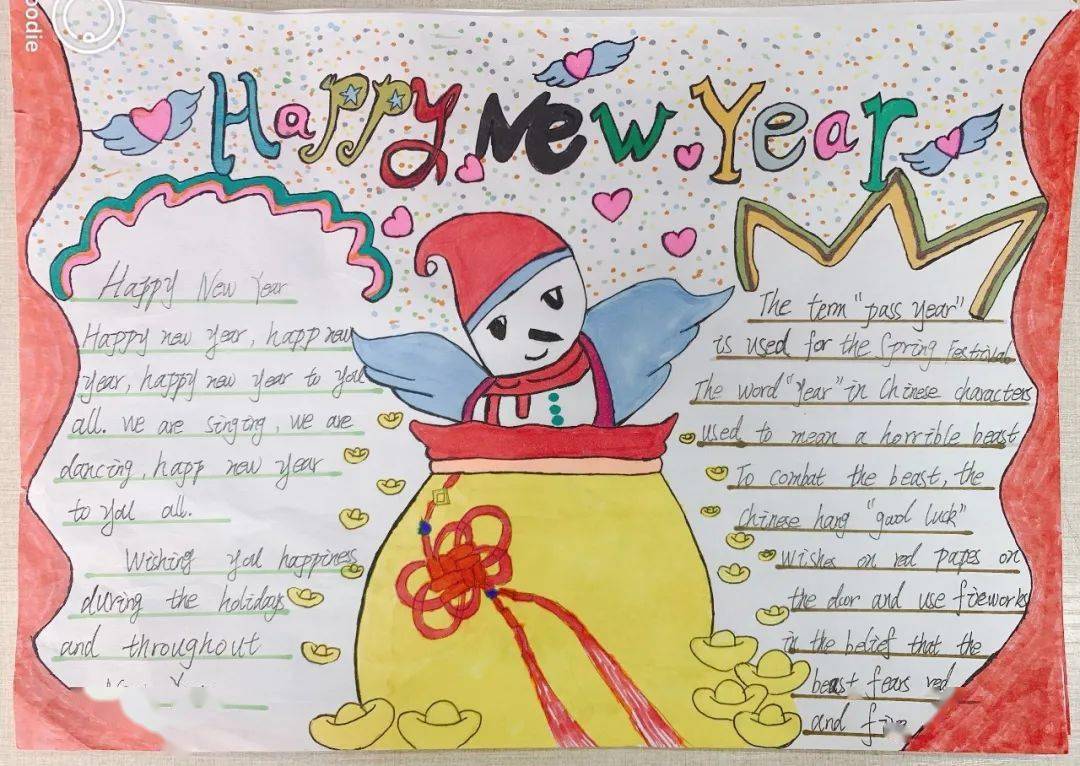 oodie
Happy New Year
Happy New Year
Happy new year, happ new
year, happy new year to you
all. We are singing, we are
dancing, happ new year
to you all.
Wishing you happiness
during the holidays
and throughout
The term "pass year"
is used for the Spring Festival
The word "year" in Chinese characters
used to mean a horrible beast
To combat the beast, the
Chinese hang "good luck"
wishes on red papes on
the door and use fireworks
in the belief that the
beast fears red
and